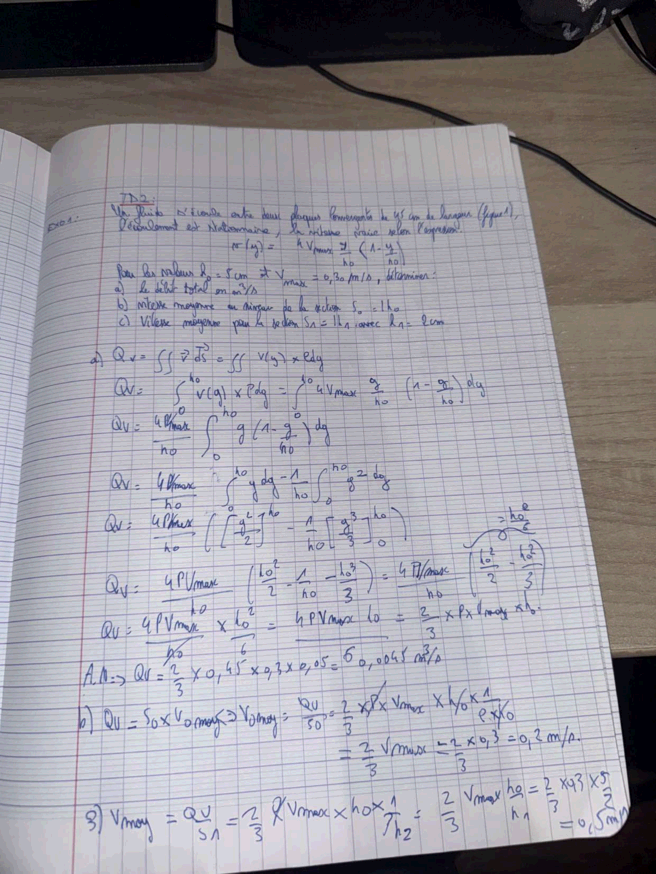 TD2:
Exo 1: Un fluide s'écoule entre deux plaques convergente de 45 cm de largeur (figure 1),
l'écoulement est stationnaire, la vitesse varie selon l'expression
v(y) = 4 Vmax y/h0 (1 - y/h0)
Pour les valeurs h0 = 5 cm et Vmax = 0,30 m/s, déterminer:
a) le débit total en m³/s
b) vitesse moyenne au niveau de la section S0 = lh0
c) Vitesse moyenne pour la section S1 = lh1 avec h1 = 2cm
a) Qv = ∬ v⃗ dS⃗ = ∬ v(y) × ldy
Qv = ∫₀^h0 v(y) × ldy = ∫₀^h0 4Vmax y/h0 (1 - y/h0) dy
Qv = 4lVmax/h0 ∫₀^h0 y (1 - y/h0) dy
Qv = 4lVmax/h0 ∫₀^h0 y dy - 1/h0 ∫₀^h0 y² dy
Qv = 4lVmax/h0 ([y²/2]₀^h0 - 1/h0 [y³/3]₀^h0)
= h0²/6
Qv = 4lVmax/h0 (h0²/2 - 1/h0 - h0³/3) = 4lVmax/h0 (h0²/2 - h0²/3)
Qv = 4lVmax/h0 × h0²/6 = 4lVmax h0 = 2/3 × l × Vmax × h0.
A.N => Qv = 2/3 × 0,45 × 0,3 × 0,05 = 0,0045 m³/s
b) Qv = S0 × V0moy => V0moy = Qv/S0 = 2/3 × l × Vmax × h0 × 1/l×h0
= 2/3 Vmax = 2/3 × 0,3 = 0,2 m/s.
3) Vmoy = Qv/S1 = 2/3 l Vmax × h0 × 1/lh2 = 2/3 Vmax h0/h1 = 2/3 × 0,3 × 5/2
= 0,5 m/s